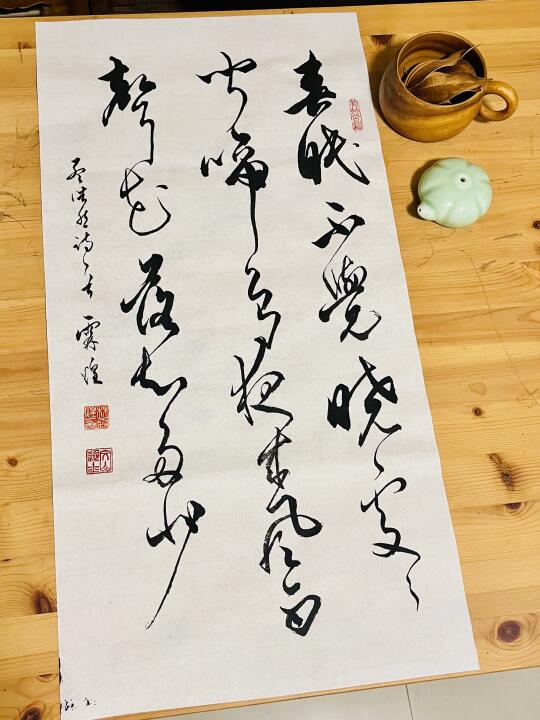 春眠不覺曉處々
聞啼鳥夜來風雨
聲花落知多少
孟浩然詩一首